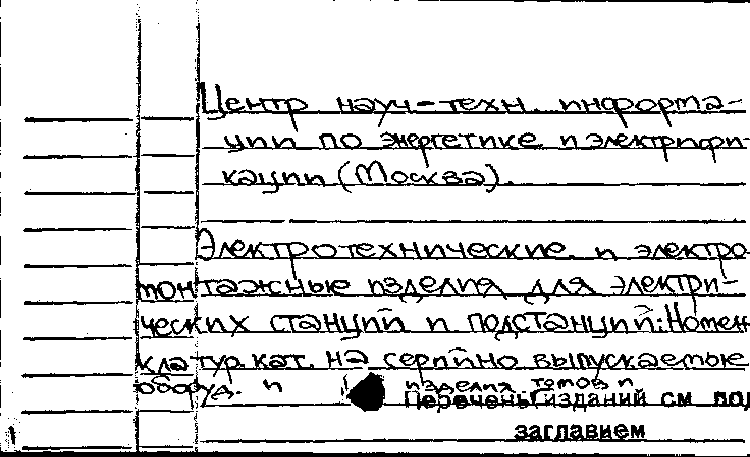 Центр науч-техн. информа-
ции по энергетике и электрифи-
кации (Москва).
Электротехнические и электро
монтажные изделия для электри-
ческих станций и подстанций: Номен
клатур. кат. на серийно выпускаемые
оборуд. и изделия
Перечень изданий см под
заглавием